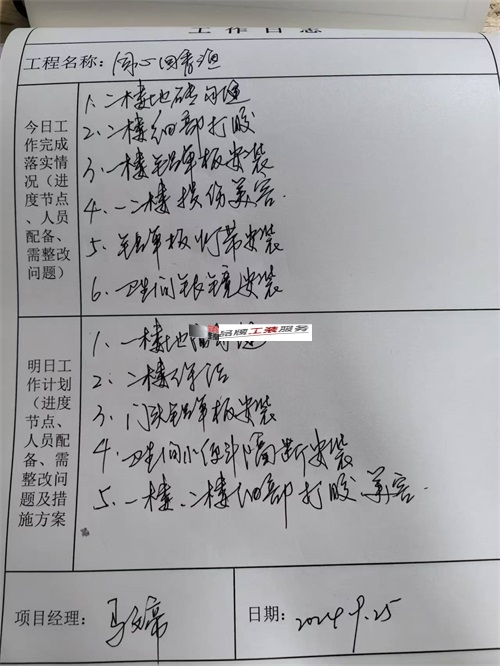 工作日志
工程名称：同心回春酒
今日工作完成落实情况（进度节点、人员配备、需整改问题）
1、二楼地砖勾缝
2、二楼细部打胶
3、一楼铝单板安装
4、一二楼损伤美容
5、铝单板灯带安装
6、卫生间银镜安装
品牌工装服务
明日工作计划（进度节点、人员配备、需整改问题及措施方案
1、一楼地
2、二楼保洁
3、门头铝单板安装
4、卫生间小便斗隔断安装
5、一楼、二楼细部打胶美容
项目经理：
日期：2024.9.25